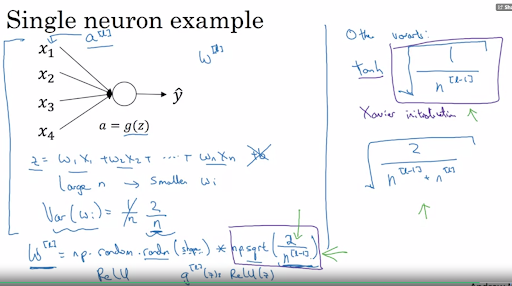 Single neuron example
x₁ a^[l]
x₂ w^[l]
x₃
x₄
ŷ
a = g(z)
z = w₁x₁ + w₂x₂ + ··· + wₙxₙ + b
Large n → Smaller wᵢ
Var(wᵢ) = 1/n 2/n
W^[l] = np.random.randn(shape) * np.sqrt(2/n^[l-1])
ReLU g^[l](z) = ReLU(z)
Other variants:
tanh √(1/n^[l-1])
Xavier
√(2/(n^[l-1] + n^[l]))